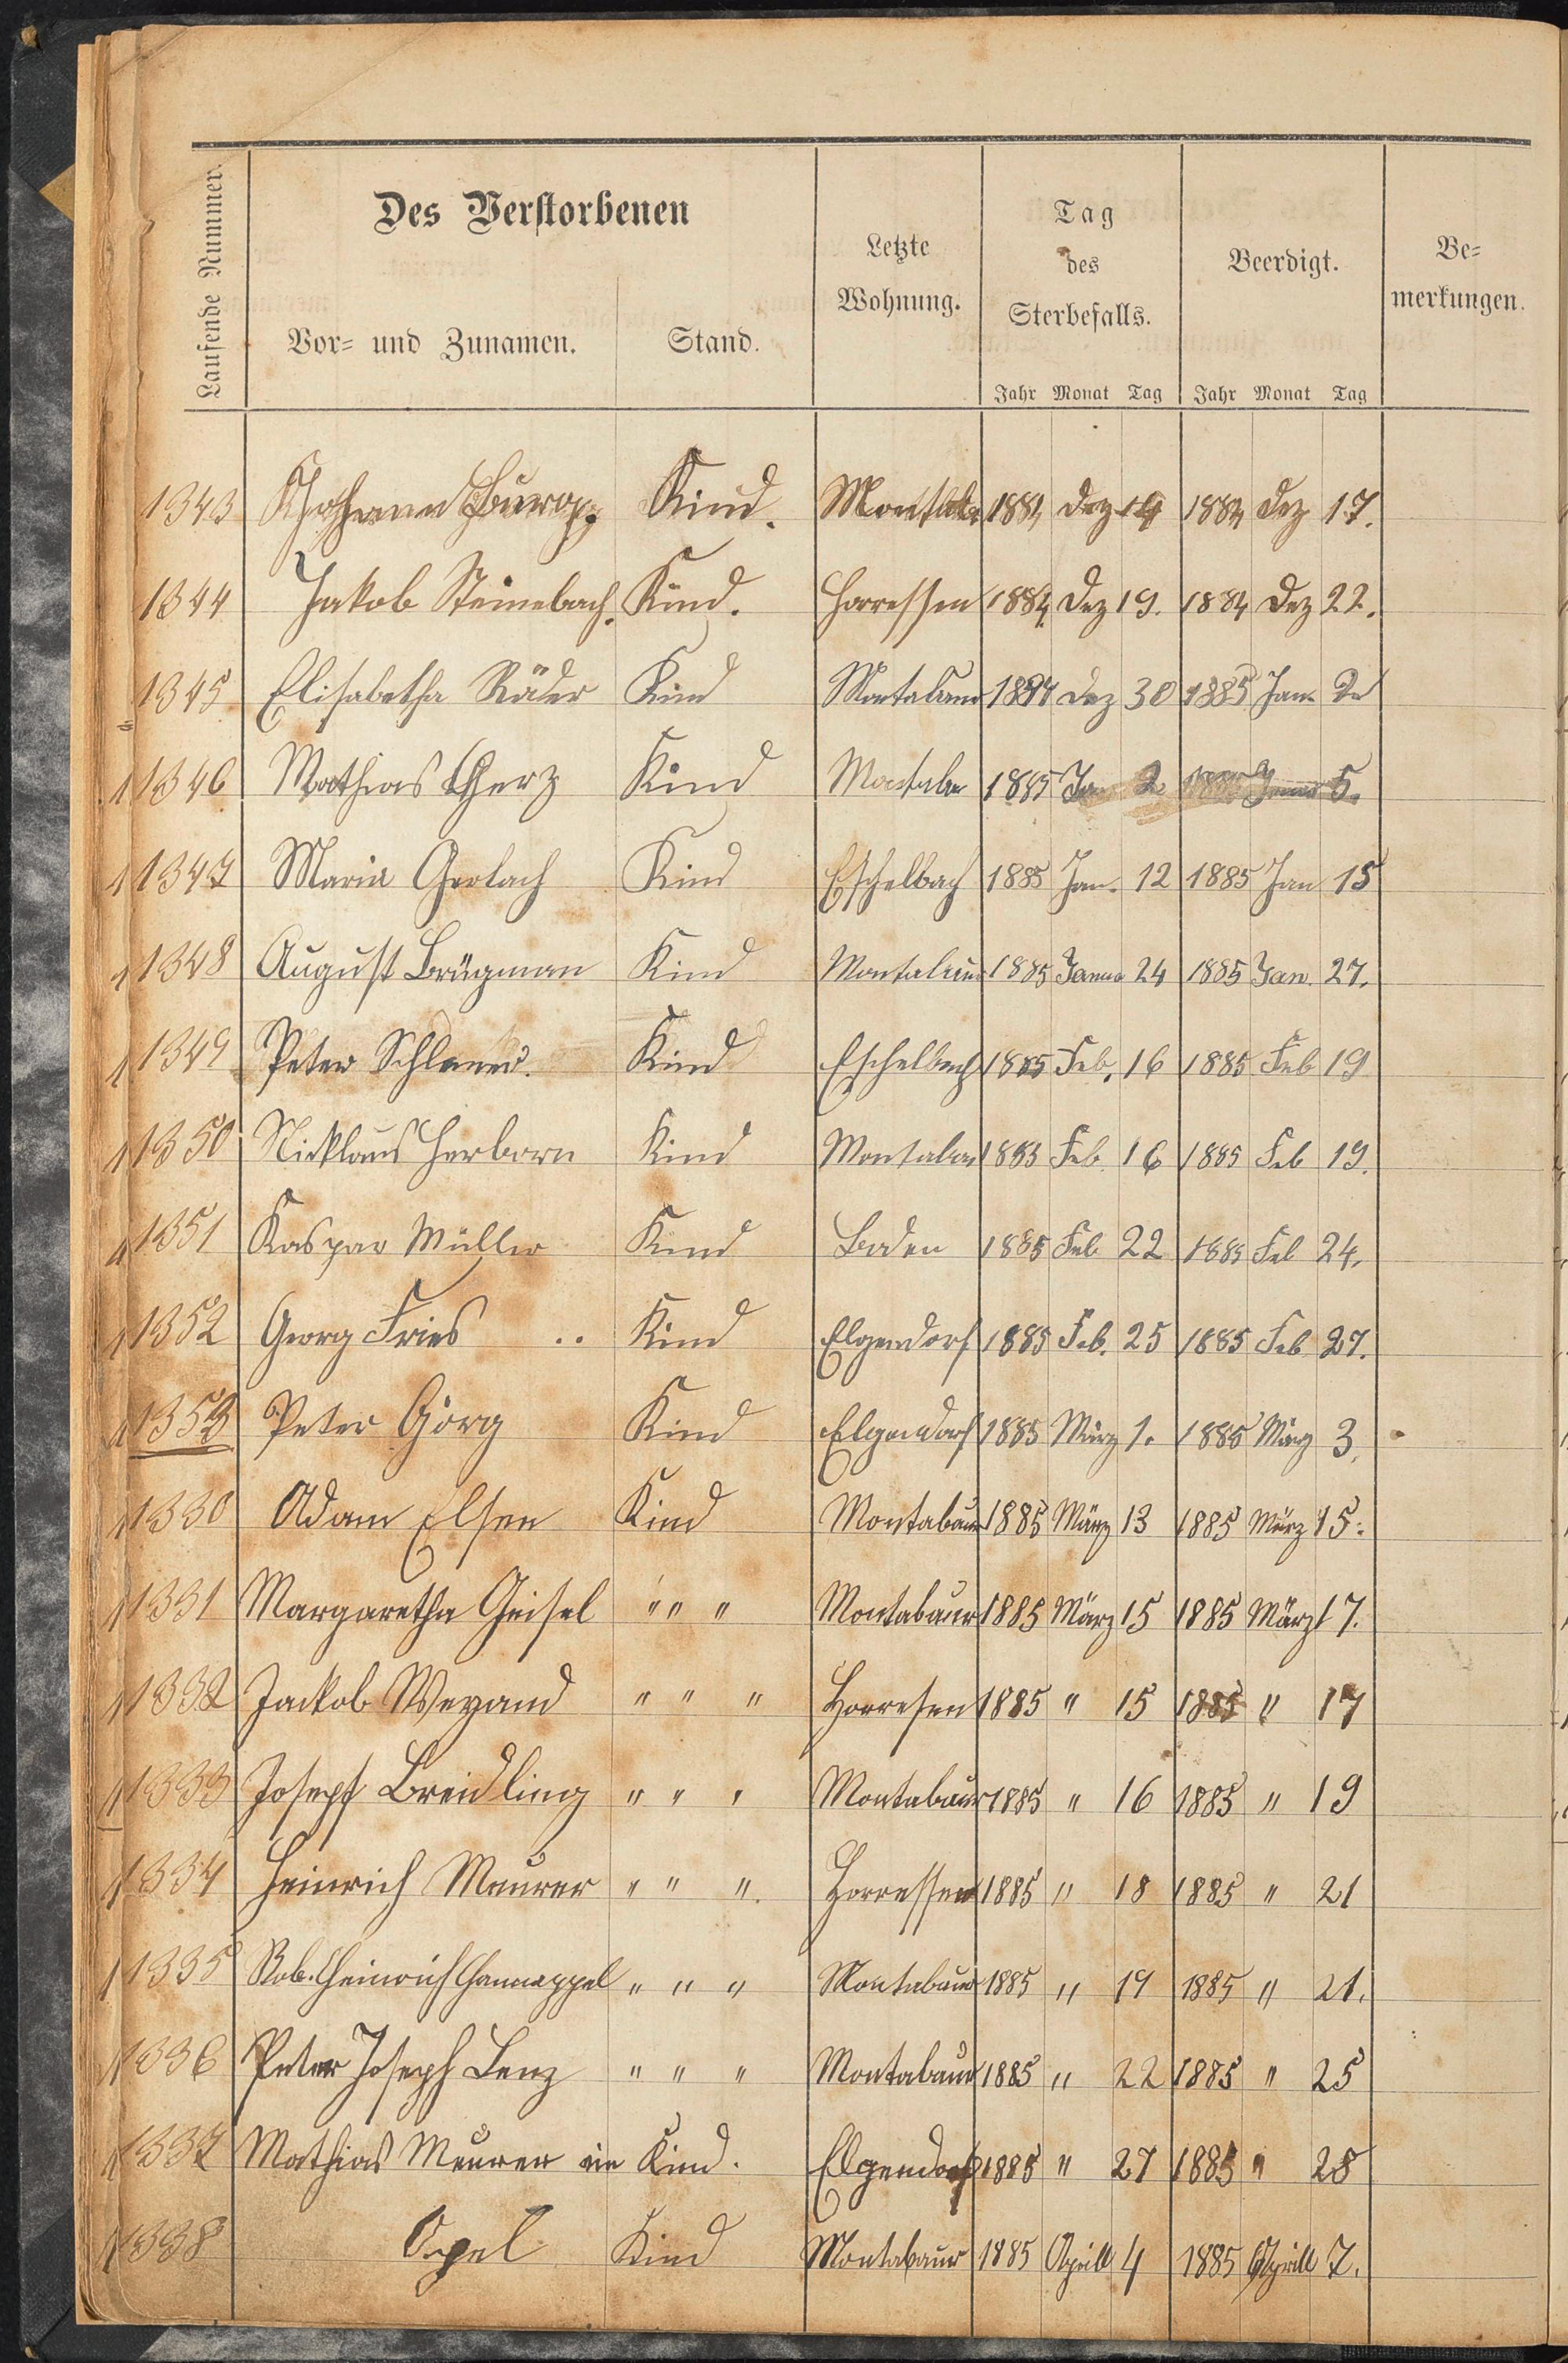 Laufende Nummer.
Des Verstorbenen
Vor- und Zunamen. Stand.
Letzte Wohnung.
Tag des Sterbefalls.
Beerdigt.
Be-
merkungen.
Jahr Monat Tag Jahr Monat Tag
1343 Kind. 1884 Dez 14 1884 Dez 17.
1344 Jakob Steinebach. Kind. Horressen 1884 Dez 19. 1884 Dez 22.
1345 Elisabetha Räder Kind Montabaur 1884 Dez 30 1885 Jan.
1346 Mathias Herz Kind 1885 Jan 2 5.
1347 Maria Gerlach Kind Eschelbach 1885 Jan. 12 1885 Jan 15
1348 August Brügman Kind Montabaur 1885 Janua 24 1885 Jan. 27.
1349 Peter Kind Eschelbach 1885 Feb. 16 1885 Feb 19
1350 Nicklaus Herborn Kind Montabaur 1885 Feb. 16 1885 Feb 19.
1351 Kaspar Müller Kind Boden 1885 Feb 22 1885 Feb 24.
1352 Georg Fries .. Kind Elgendorf 1885 Feb. 25 1885 Feb 27.
1353 Peter Görg Kind Elgendorf 1885 März 1. 1885 März 3.
1330 Adam Elsen Kind Montabaur 1885 März 13 1885 März 15.
1331 Margaretha Geisel " " " Montabaur 1885 März 15 1885 März 17.
1332 Jackob Weyand " " " Horresen 1885 " 15 1885 " 17
1333 Joseph Breidling " " " Montabaur 1885 " 16 1885 " 19
1334 Heinrich Meurer " " ". Horressen 1885 " 18 1885 " 21
1335 Rob. Heinrich Hannappel " " " Montabaur 1885 " 19 1885 " 21.
1336 Peter Joseph Lenz " " " Montabaur 1885 " 22 1885 " 25
1337 Mathias Meurer ein Kind. Elgendorf 1885 " 27 1885 " 28
1338 Opel Kind Montabaur 1885 Aprill 4 1885 Aprill 7.